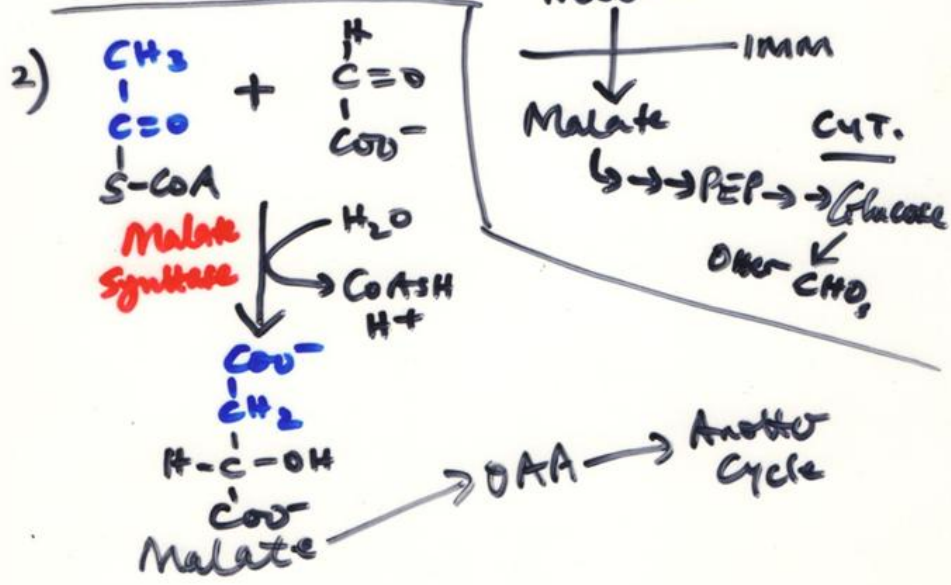 2)
CH3
C=O
S-CoA
+
H
C=O
COO-
Malate
Synthase
H2O
CoASH
H+
COO-
CH2
H-C-OH
COO-
Malate
OAA
Another
Cycle
IMM
Malate
CYT.
PEP
Glucose
Other
CHOs